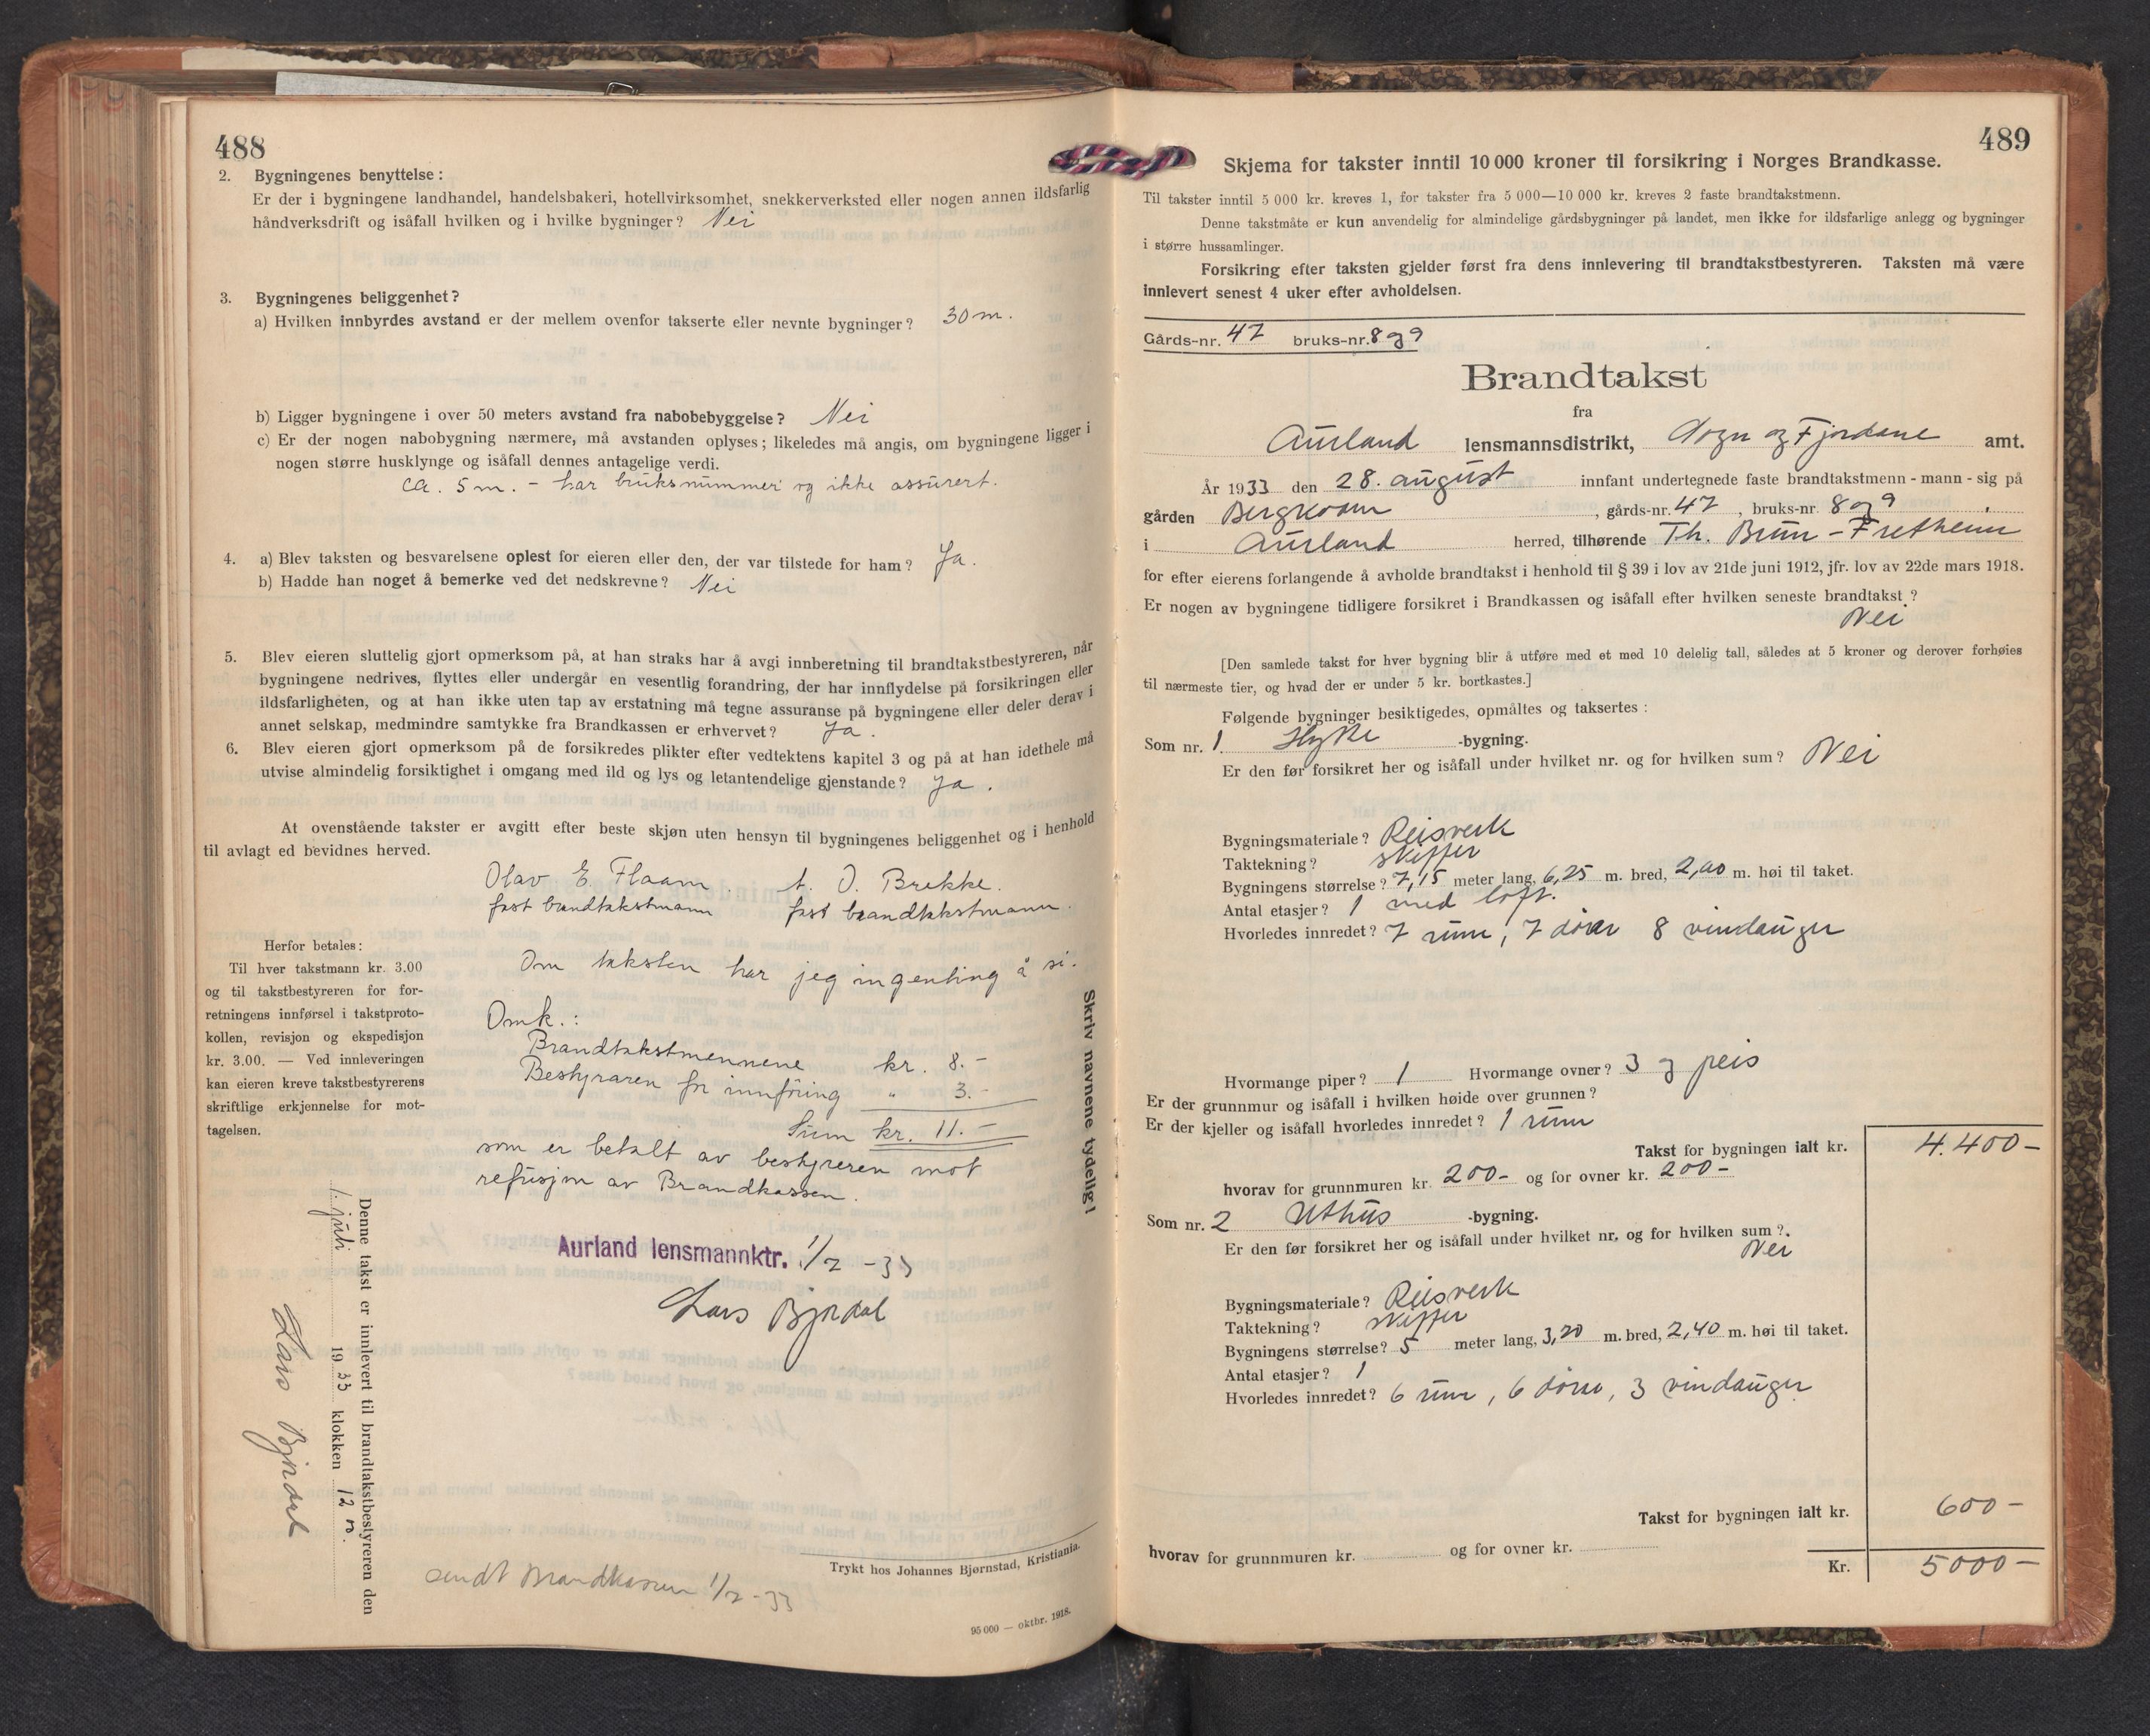 488
2. Bygningenes benyttelse:
Er der i bygningene landhandel, handelsbakeri, hotellvirksomhet, snekkerverksted eller nogen annen ildsfarlig
håndverksdrift og isåfall hvilken og i hvilke bygninger? Nei
3. Bygningenes beliggenhet?
a) Hvilken innbyrdes avstand er der mellem ovenfor takserte eller nevnte bygninger? 30 m.
b) Ligger bygningene i over 50 meters avstand fra nabobebyggelse? Nei
c) Er der nogen nabobygning nærmere, må avstanden oplyses; likeledes må angis, om bygningene ligger i
nogen større husklynge og isåfall dennes antagelige verdi.
ca. 5 m. - har bruksnummer og ikke assurert.
4. a) Blev taksten og besvarelsene oplest for eieren eller den, der var tilstede for ham? Ja.
b) Hadde han noget å bemerke ved det nedskrevne? Nei
5. Blev eieren sluttelig gjort opmerksom på, at han straks har å avgi innberetning til brandtakstbestyreren, når
bygningene nedrives, flyttes eller undergår en vesentlig forandring, der har innflydelse på forsikringen eller
ildsfarligheten, og at han ikke uten tap av erstatning må tegne assuranse på bygningene eller deler derav i
annet selskap, medmindre samtykke fra Brandkassen er erhvervet? Ja.
6. Blev eieren gjort opmerksom på de forsikredes plikter efter vedtektens kapitel 3 og på at han idethele må
utvise almindelig forsiktighet i omgang med ild og lys og letantendelige gjenstande? Ja.
At ovenstående takster er avgitt efter beste skjøn uten hensyn til bygningenes beliggenhet og i henhold
til avlagt ed bevidnes herved.
Olav E. Flaam. A. O. Brekke.
fast brandtakstmann fast brandtakstmann.
Herfor betales:
Til hver takstmann kr. 3.00
og til takstbestyreren for for-
retningens innførsel i takstproto-
kollen, revisjon og ekspedisjon
kr. 3.00. — Ved innleveringen
kan eieren kreve takstbestyrerens
skriftlige erkjennelse for mot-
tagelsen.
Om taksten har jeg ingenting å si.
Omk.:
Brandtakstmennene kr. 8.-
Bestyraren for innföring " 3.-
Sum kr. 11.-
som er betalt av bestyreren mot
refusjon av Brandkassen.
Skriv navnene tydelig!
Aurland lensmannktr. 1/7 - 33
Lars Bjørdal
Denne takst er innlevert til brandtakstbestyreren den
1. juli 1933 klokken 12
Lars Bjørdal
sendt Brandkassen 1/7 - 33
Trykt hos Johannes Bjørnstad, Kristiania.
95 000 — oktbr. 1918.
489
Skjema for takster inntil 10 000 kroner til forsikring i Norges Brandkasse.
Til takster inntil 5 000 kr. kreves 1, for takster fra 5 000—10 000 kr. kreves 2 faste brandtakstmenn.
Denne takstmåte er kun anvendelig for almindelige gårdsbygninger på landet, men ikke for ildsfarlige anlegg og bygninger
i større hussamlinger.
Forsikring efter taksten gjelder først fra dens innlevering til brandtakstbestyreren. Taksten må være
innlevert senest 4 uker efter avholdelsen.
Gårds-nr. 47 bruks-nr. 8 og 9
Brandtakst
fra
Aurland lensmannsdistrikt, Sogn og Fjordane amt.
År 1933 den 28. august innfant undertegnede faste brandtakstmenn - mann - sig på
gården Bergkvam, gårds-nr. 47, bruks-nr. 8 og 9
i Aurland herred, tilhørende Th. Brun - Fretheim
for efter eierens forlangende å avholde brandtakst i henhold til § 39 i lov av 21de juni 1912, jfr. lov av 22de mars 1918.
Er nogen av bygningene tidligere forsikret i Brandkassen og isåfall efter hvilken seneste brandtakst?
Nei
[Den samlede takst for hver bygning blir å utføre med et med 10 delelig tall, således at 5 kroner og derover forhøies
til nærmeste tier, og hvad der er under 5 kr. bortkastes.]
Følgende bygninger besiktigedes, opmåltes og taksertes:
Som nr. 1 Hytte -bygning.
Er den før forsikret her og isåfall under hvilket nr. og for hvilken sum? Nei
Bygningsmateriale? Reisverk
Taktekning? skiffer
Bygningens størrelse? 7,15 meter lang, 6,25 m. bred, 2,00 m. høi til taket.
Antal etasjer? 1 med loft.
Hvorledes innredet? 7 rum, 7 dörer 8 vindauger
Hvormange piper? 1 Hvormange ovner? 3 og peis
Er der grunnmur og isåfall i hvilken høide over grunnen?
Er der kjeller og isåfall hvorledes innredet? 1 rum
Takst for bygningen ialt kr. 4.400-
hvorav for grunnmuren kr. 200- og for ovner kr. 200-
Som nr. 2 Uthus -bygning.
Er den før forsikret her og isåfall under hvilket nr. og for hvilken sum?
Nei
Bygningsmateriale? Reisverk
Taktekning? skiffer
Bygningens størrelse? 5 meter lang, 3,20 m. bred, 2,40 m. høi til taket.
Antal etasjer? 1
Hvorledes innredet? 6 rum, 6 dörer, 3 vindauger
Takst for bygningen ialt kr. 600-
hvorav for grunnmuren kr. og for ovner kr.
Kr. 5000-